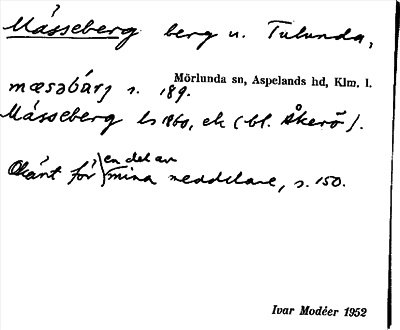 Måsseberg berg u. Tulunda,
Mörlunda sn, Aspelands hd, Klm. l.
mæsəbarj s. 189.
Måsseberg ls 1860, ek (bl. Åkerö).
Okänt för en del av mina meddelare, s. 150.
Ivar Modéer 1952